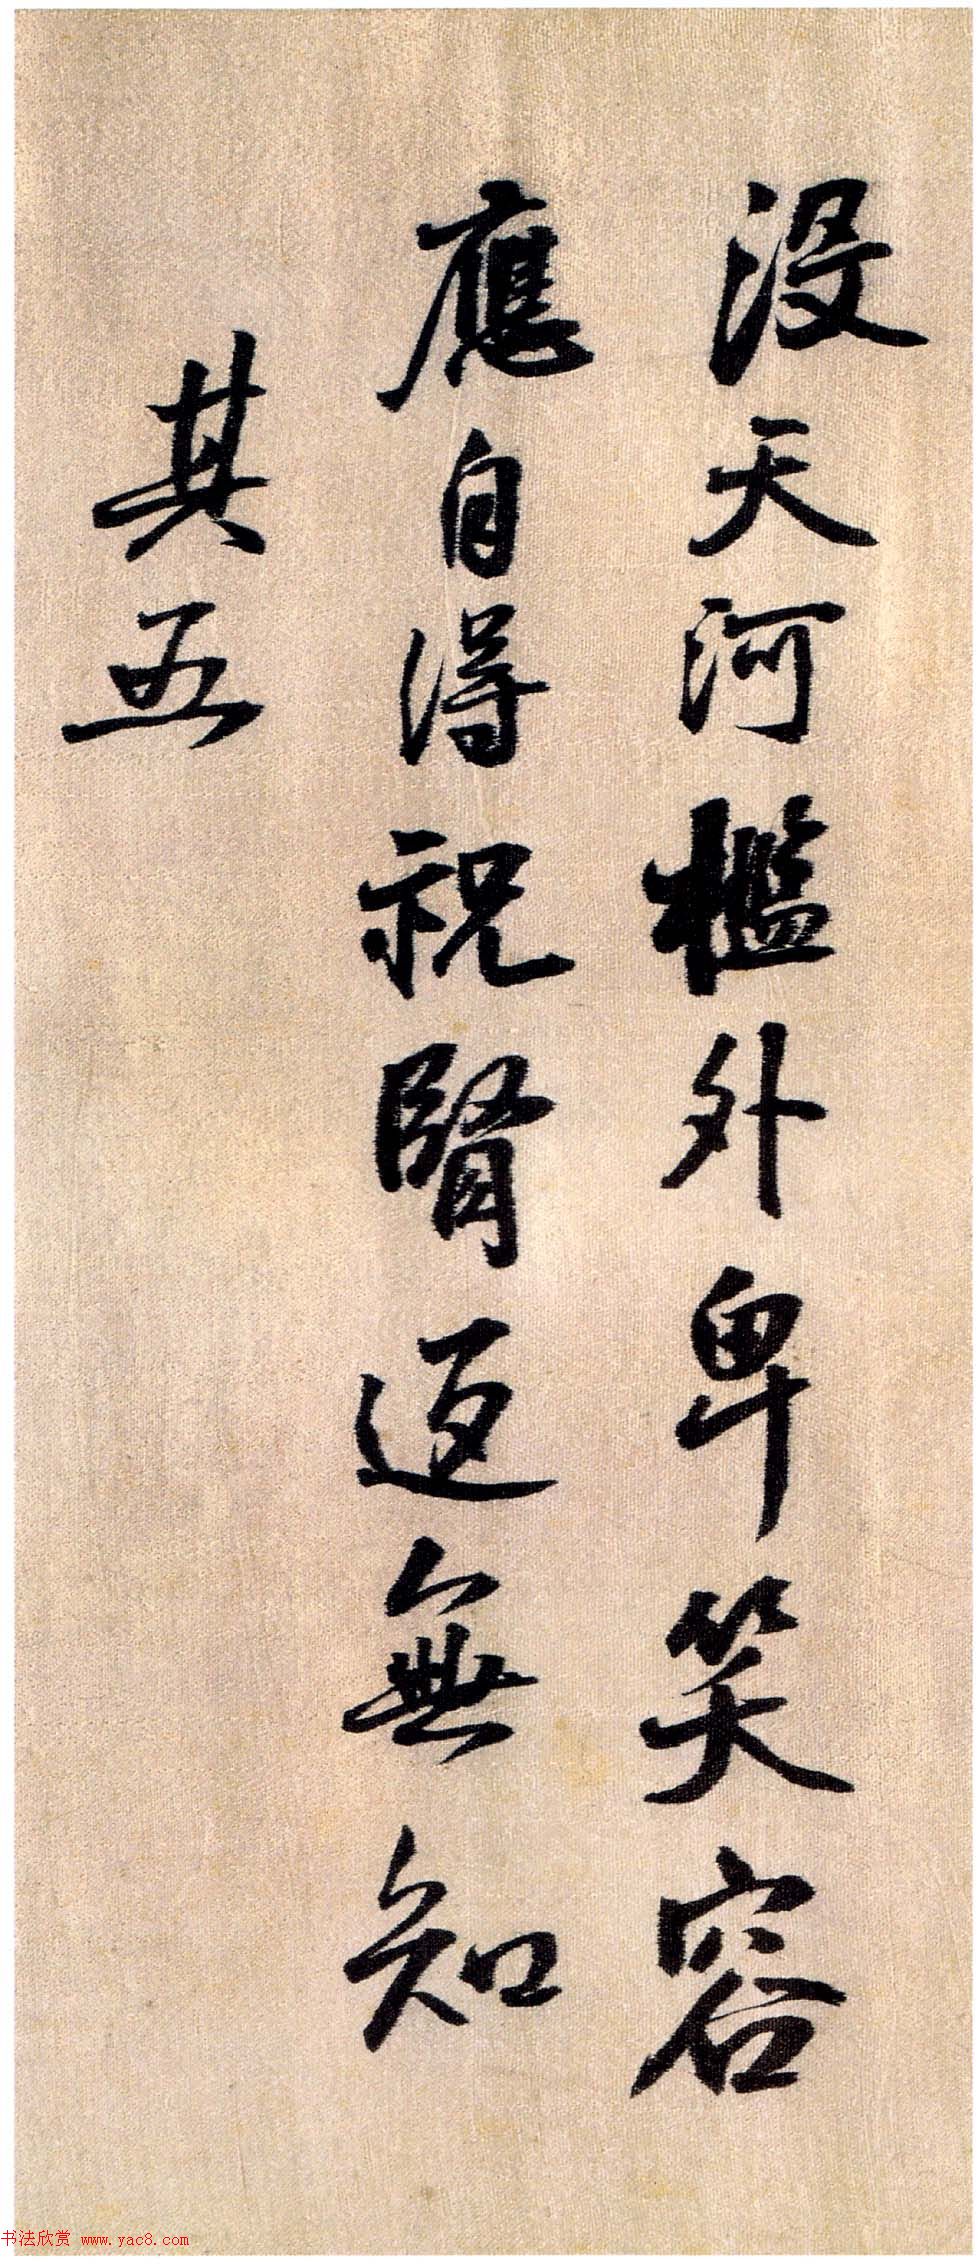 没天河檻外卑笑容
應自得祝賢迈無知
其五
书法欣赏 www.yac8.com